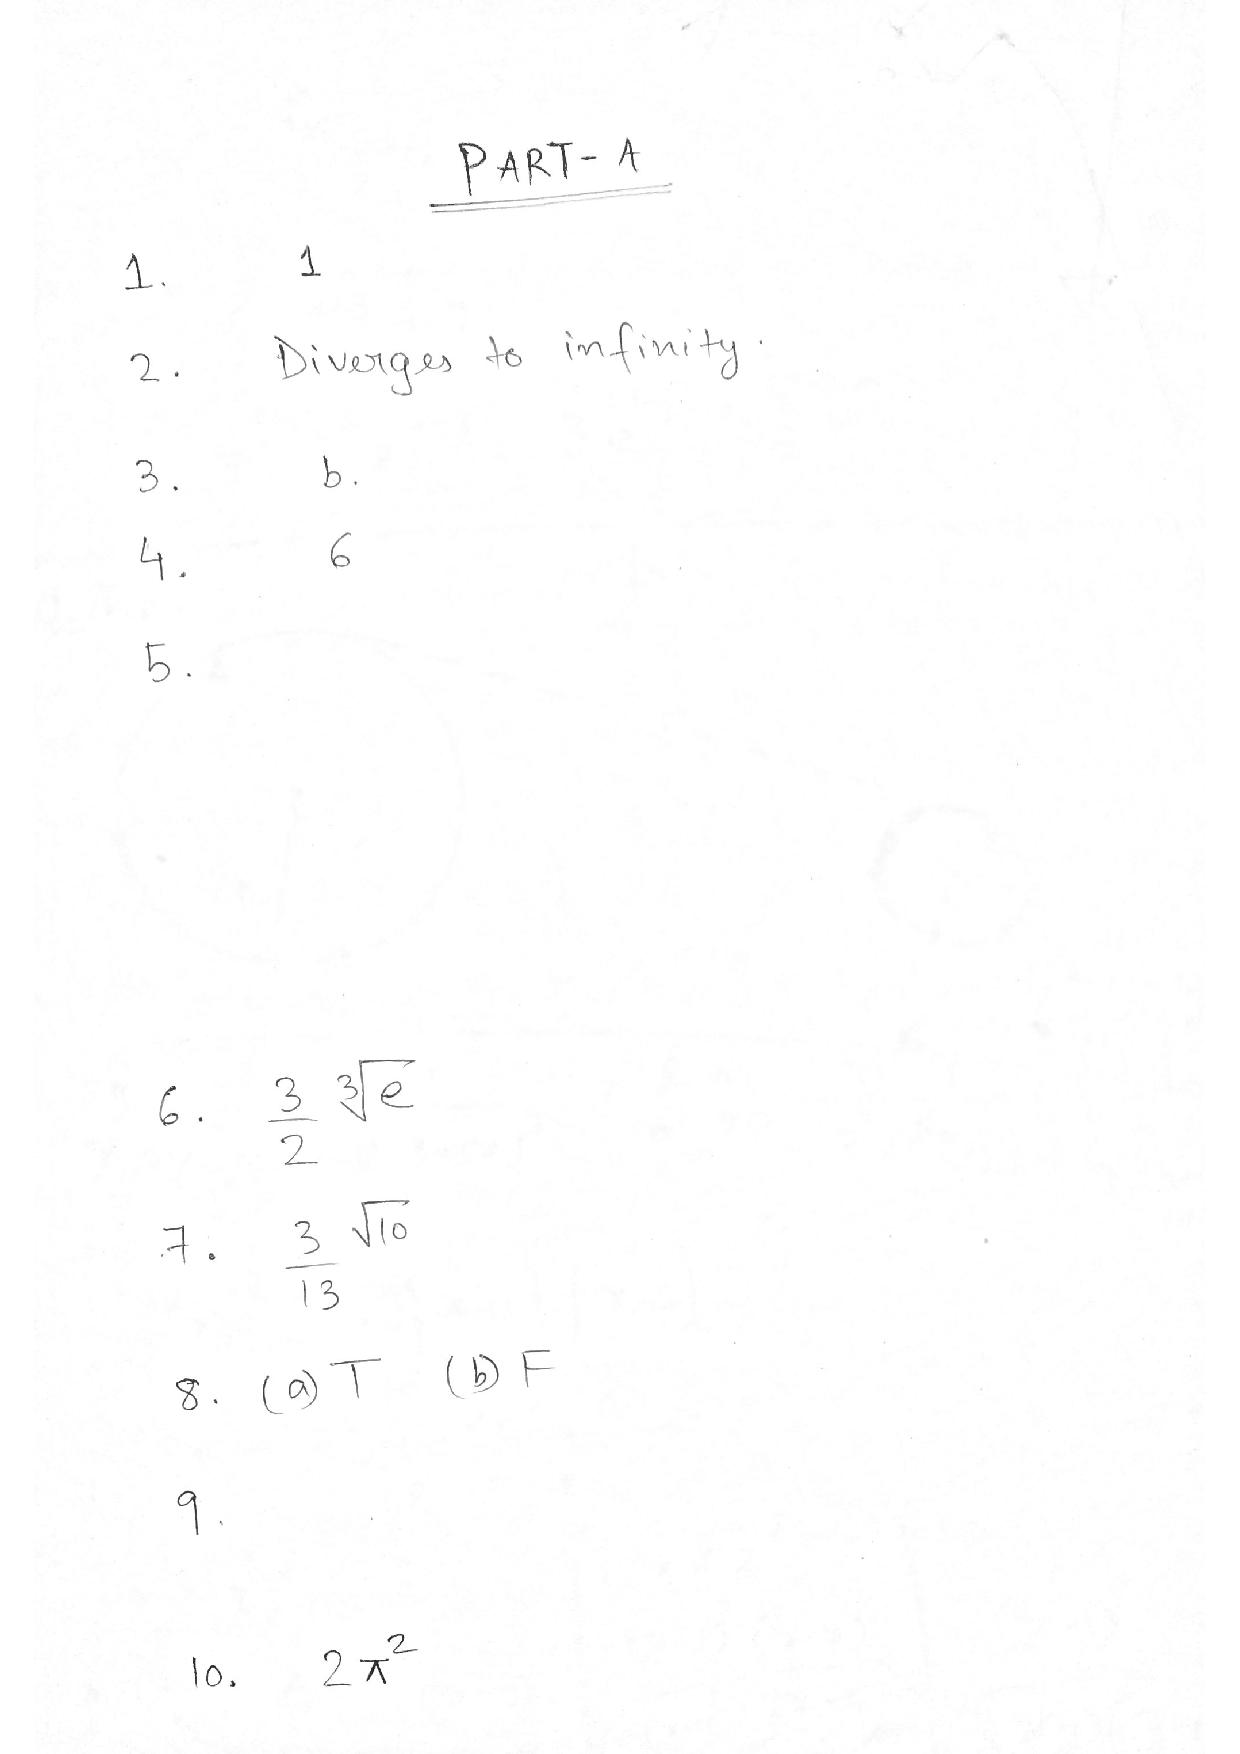 PART-A
1. 1
2. Diverges to infinity.
3. b.
4. 6
5.
6. 3/2 ∛e
7. 3/13 √10
8. (a) T (b) F
9.
10. 2π²